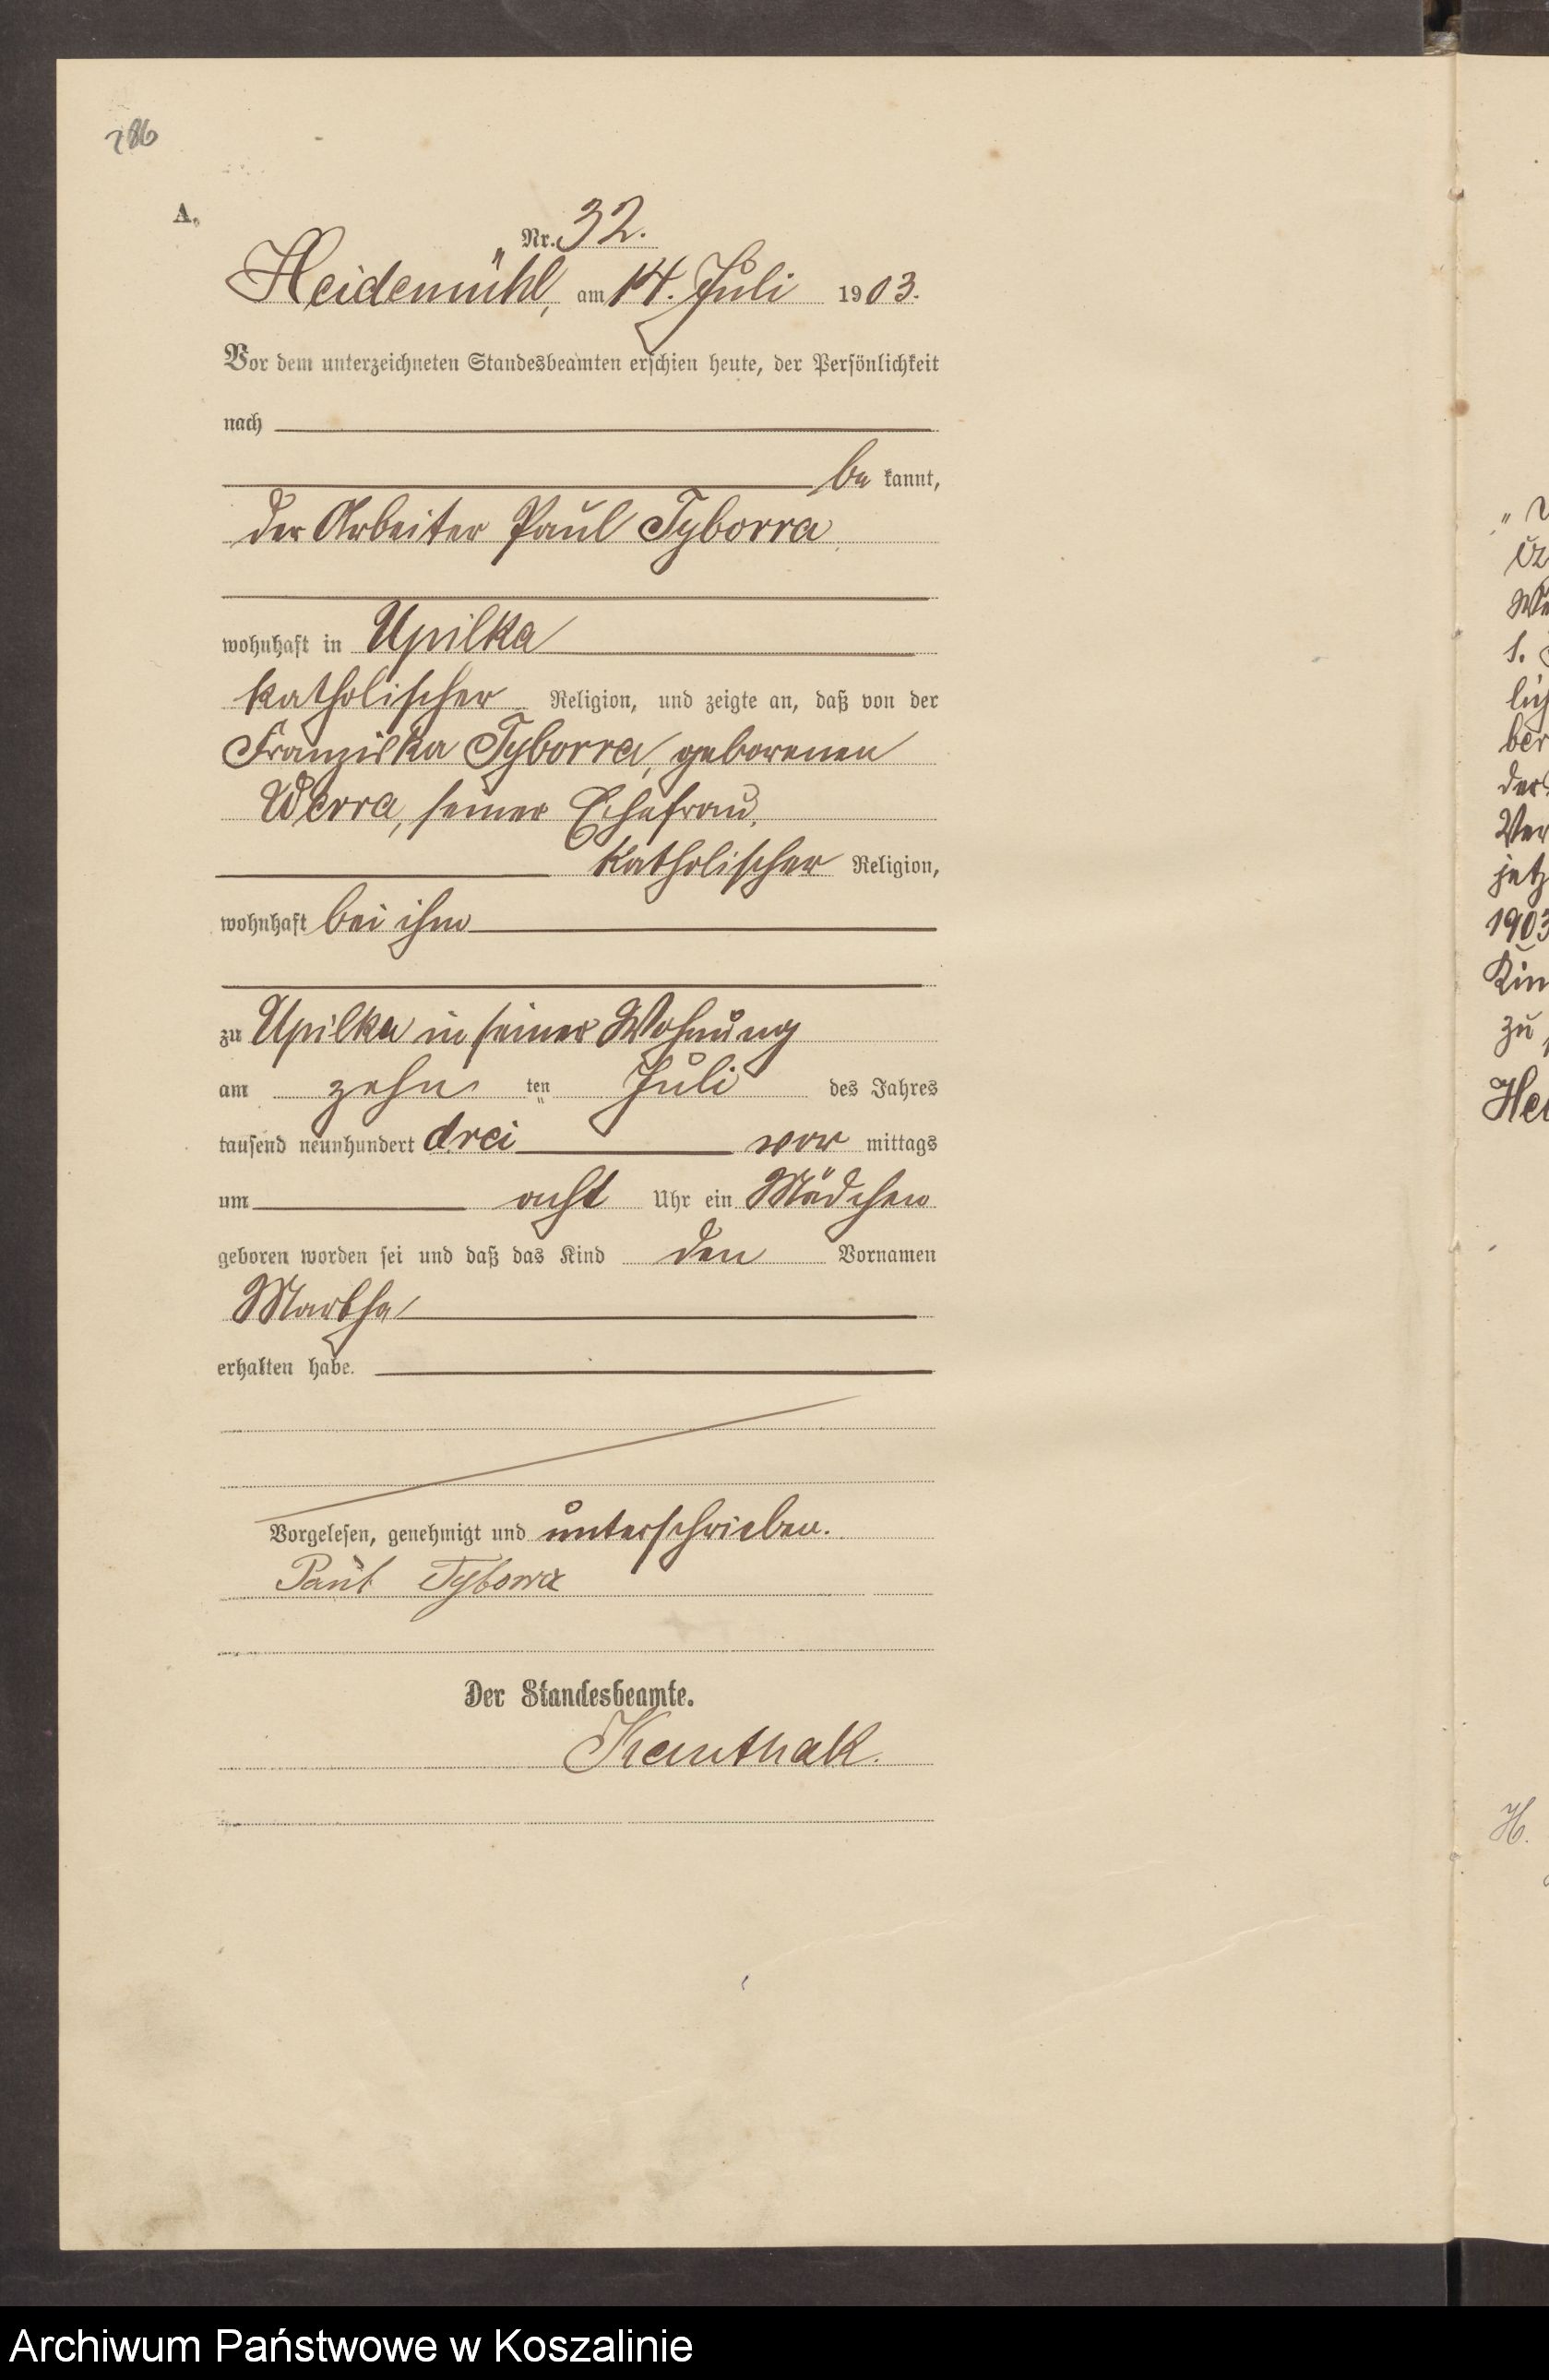 286
A.
Nr. 32.
Heidemühl, am 14. Juli 1903.
Vor dem unterzeichneten Standesbeamten erschien heute, der Persönlichkeit
nach
be kannt,
der Arbeiter Paul Tyborra
wohnhaft in Upilka
katholischer Religion, und zeigte an, daß von der
Franziska Tyborra, geborenen
Werra, seiner Ehefrau,
katholischer Religion,
wohnhaft bei ihm
zu Upilka in seiner Wohnung
am zehn ten Juli des Jahres
tausend neunhundert drei vor mittags
um acht Uhr ein Mädchen
geboren worden sei und daß das Kind den Vornamen
Martha
erhalten habe.
Vorgelesen, genehmigt und unterschrieben.
Paul Tyborra
Der Standesbeamte.
1903
zu
H.
Archiwum Państwowe w Koszalinie